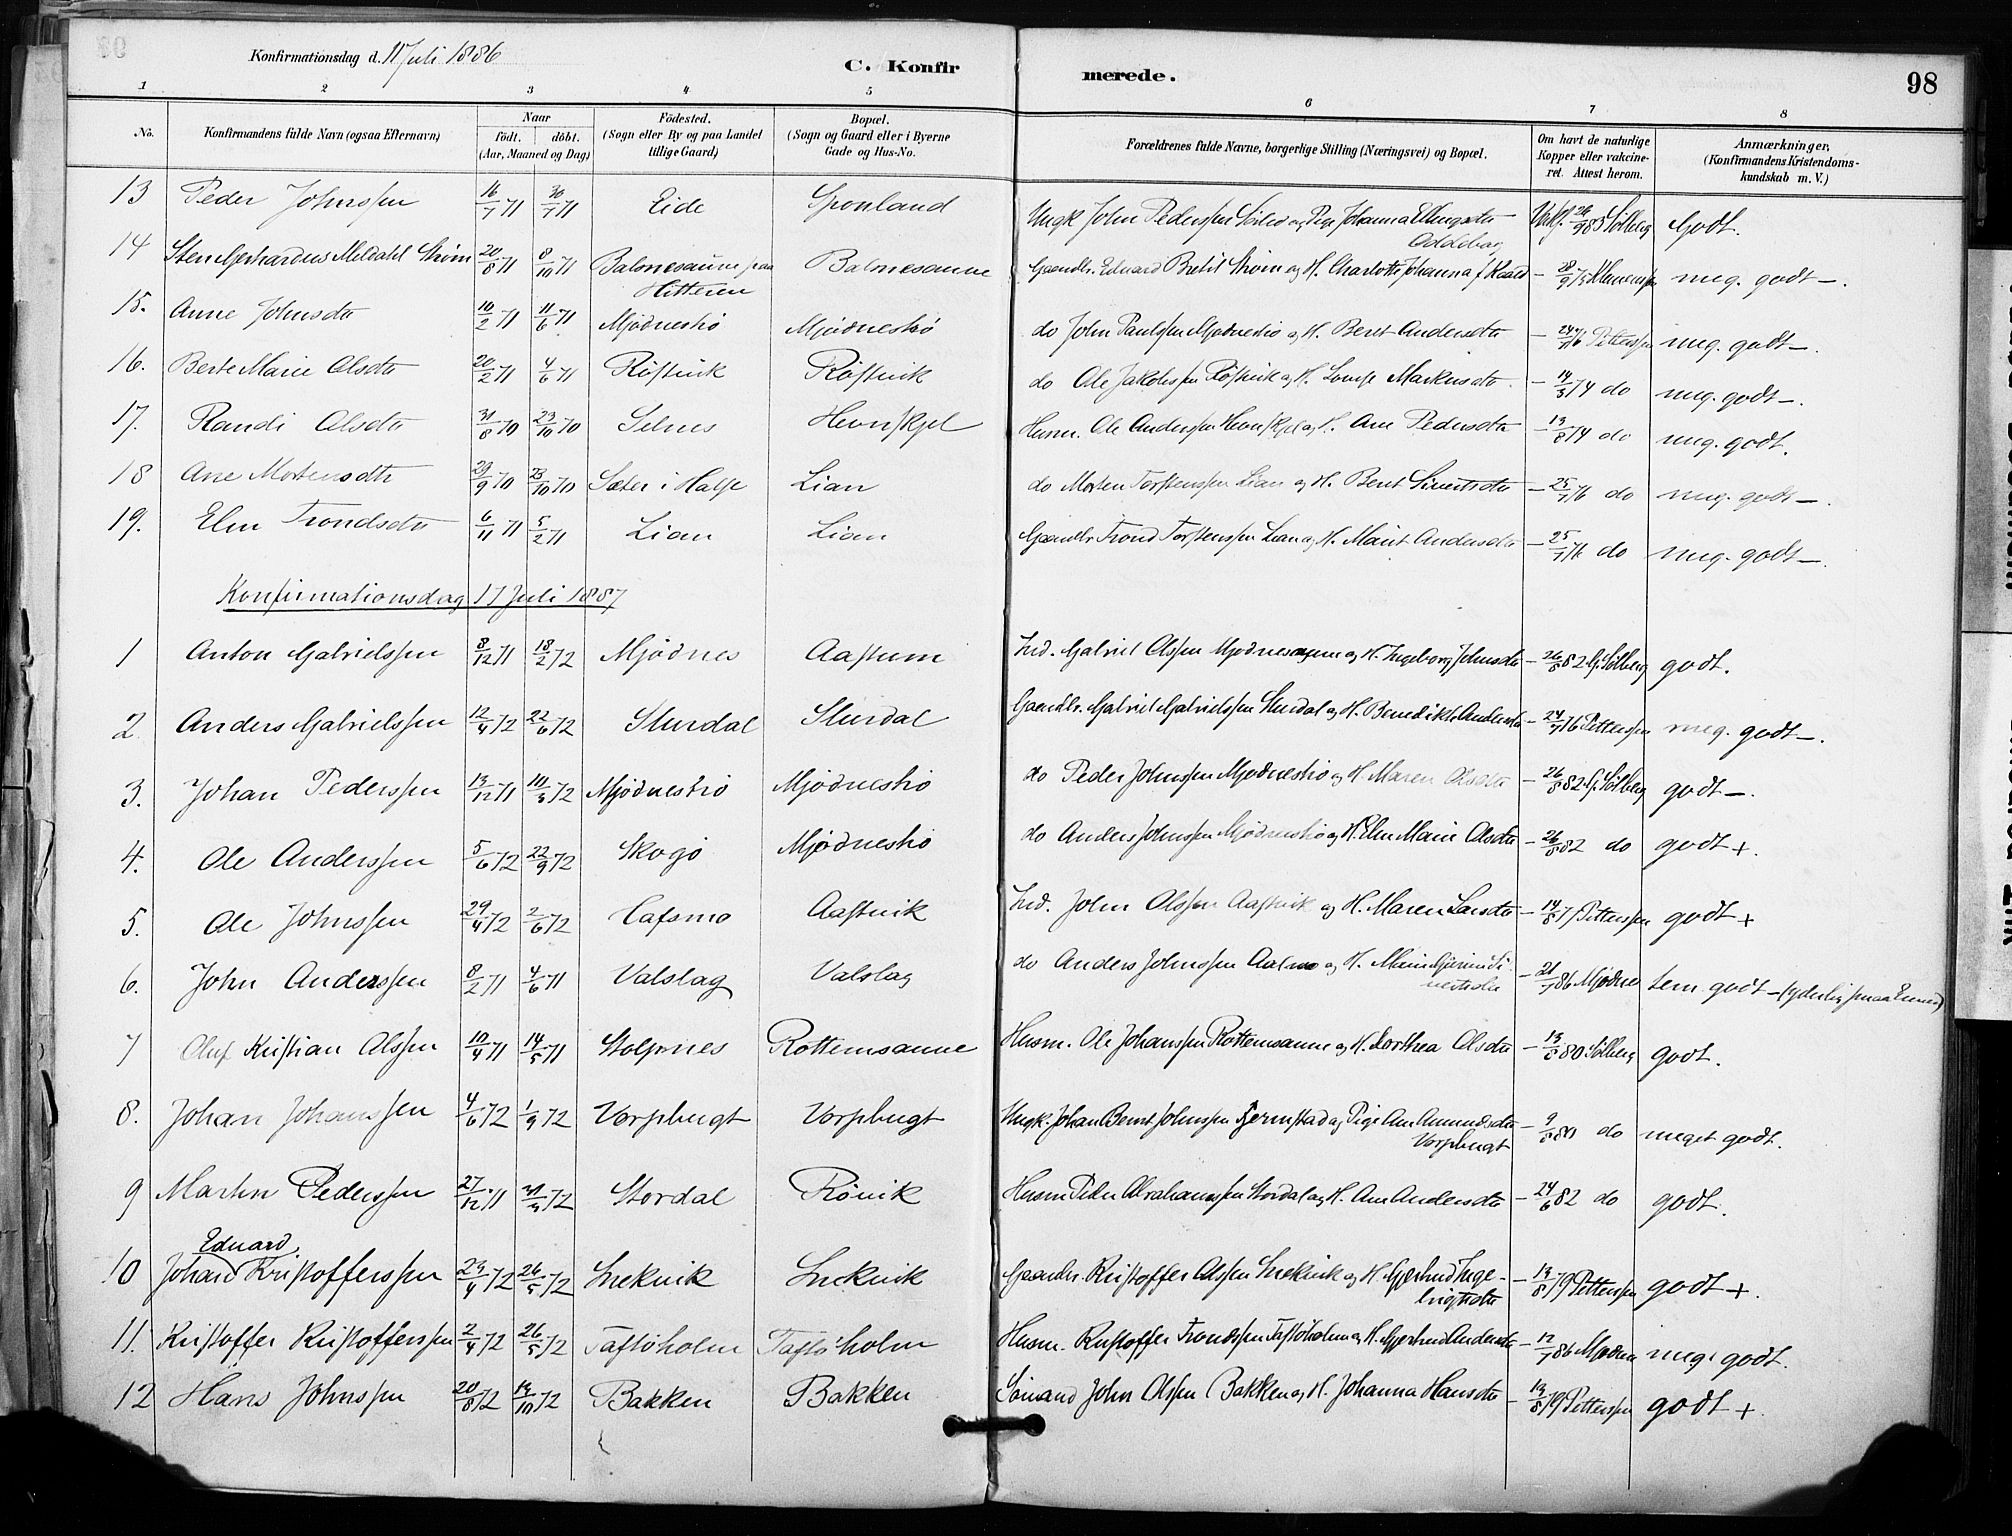 Konfirmationsdag d. 11 Juli 1886 C. Konfirmerede. 98
1 2 3 4 5 6 7 8
No. Konfirmandens fulde Navn (ogsaa Efternavn) Naar født. døbt. (Aar, Maaned og Dag) Fødested. (Sogn eller By og paa Landet tillige Gaard) Bopæl. (Sogn og Gaard eller i Byerne Gade og Hus-No. Forældrenes fulde Navne, borgerlige Stilling (Næringsvei) og Bopæl. Om havt de naturlige Kopper eller vakcineret. Attest herom. Anmærkninger, (Konfirmandens Kristendomskundskab m. V.)
13 Peder Johnssen 16/7 71 30/7 71 Eide Gronland Ungk John Pederssen og Pige Johanna Ellingsdtr Oddebag 83 Solberg Godt.
14 Sten Gerhardus Meldahl Strøm 20/8 71 8/10 71 Balsnesaune paa Hitteren Balsnesaune Gaardbr. Eduard Bretil Strøm og H. Charlotte Johanna f. – 28/9 75 Klemenssen meg. godt –.
15. Anne Johnsdtr 10/2 71 11/6 71 Mjødnestrø Mjødnestrø do John Paulssen Mjødnestrø og H. Beret Andersdtr – Petterssen meg. godt –.
16. Berte Marie Olsdtr 20/2 71 4/6 71 Røstvik Røstvik do Ole Jakobssen Røstvik og H. Markusdtr. – 14/3 74 do meg. godt –.
17. Randi Olsdtr 31/8 70 23/10 70 Selnes Hevnskjel Husm. Ole Anderssen Hevnskjel og H. Ane Pedersdtr – 13/8 74 do meg. godt.
18 Ane Mortensdtr 29/9 70 23/10 70 Sæter i Halse Lian do Morten Torstenssen Lian og H. Beret Sivertsdtr – 25/7 76 do meg. godt –.
19. Elen Trondsdtr 6/11 71 5/2 71 Lian Lian Gaardbr. Trond Torstenssen Lian og H. Marit Andersdtr – 25/7 76 do meg. godt –.
Konfirmationsdag 17 Juli 1887
1 Anton Gabrielssen 8/12 71 18/2 72 Mjødnes Aastum Ind. Gabriel Olssen Mjødnesaune og H. Ingeborg Johnsdtr – 26/8 82 G. Solberg godt.
2 Anders Gabrielssen 12/4 72 22/6 72 Slurdal Slurdal Gaardbr. Gabriel Gabrielssen Slurdal og H. Benedikte Andersdtr – 24/7 76 Petterssen meg. godt –.
3. Johan Pederssen 13/12 71 10/3 72 Mjødnestrø Mjødnestrø do Peder Johnssen Mjødnestrø og H. Maren Olsdtr – 26/8 82 G. Solberg godt –.
4. Ole Anderssen 5/6 72 22/9 72 Skogø Mjødnestrø do Anders Johnssen Mjødnestrø og H. Elen Marie Olsdtr – 26/8 82 do godt +.
5. Ole Johnssen 29/4 72 2/6 72 Aastvik Ind. John Olssen Aastvik og H. Maren Larsdtr – 14/8 77 Petterssen godt +
6. John Anderssen 8/2 71 4/6 71 Valslag Valslag do Anders Johnssen og H. Sivertsdtr – 21/7 86 Mjødnes tem. godt –
7 Oluf Kristian Olssen 10/4 71 14/5 71 Stolpnes Rottemsaune Husm. Ole Johanssen Rottemsaune og H. Dorthea Olsdtr – 13/8 80 Solberg godt.
8. Johan Johanssen 4/6 72 1/9 72 Vorpbugt Vorpbugt Ungk. Johan Bernt Johnssen og Pige Ane Amundsdtr Vorpbugt – 9/8 80 do meget godt.
9 Martin Pederssen 27/12 71 31/3 72 Stordal Røvik Husm Peder Abrahamssen Stordal og H. Ane Andersdtr – 24/6 82 do godt.
10 Johan Eduard Kristofferssen 29/4 72 26/5 72 Snekvik Snekvik Gaardbr. Kristoffer Olssen Snekvik og H. Gjertrud Ingebrigtsdtr – 13/8 79 Petterssen godt +.
11. Kristoffer Kristofferssen 2/4 72 26/5 72 Taftøholm Taftøholm Husm. Kristoffer Trondssen Taftøholm og H. Gjertrud Andersdtr – 12/7 86 Mjødnes meg. godt.
12 Hans Johnssen 20/8 72 13/10 72 Bakken Bakken Sømand John Olssen Bakken og H. Johanna Hansdtr – 13/8 79 Petterssen godt +.